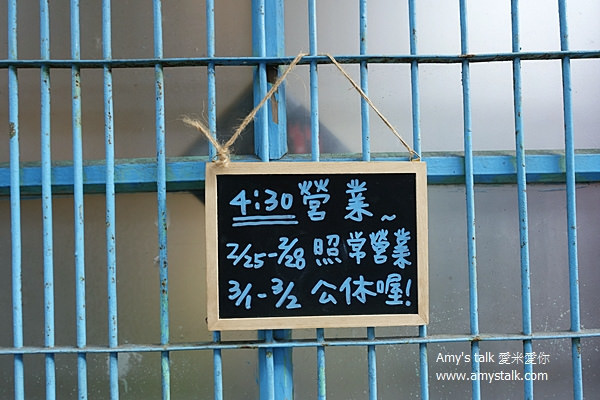 4:30營業~
2/25-2/28 照常營業
3/1-3/2 公休喔!
Amy's talk 愛米愛你
www.amystalk.com